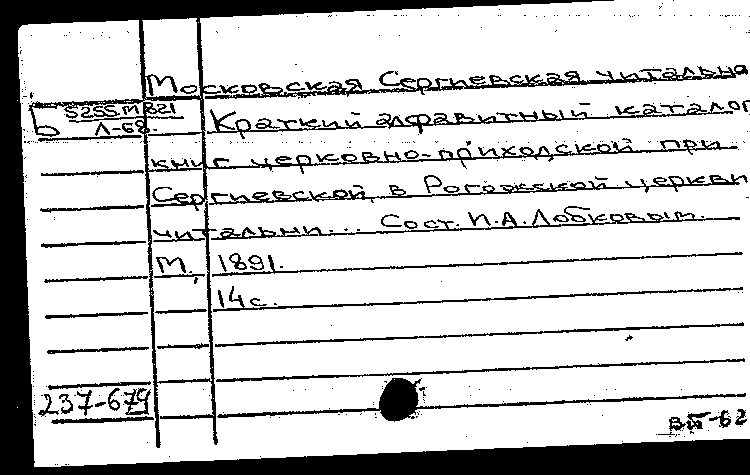 Московская Сергиевская читальна
Б S255.М/821
Л-68.
Краткий алфавитный каталог
книг церковно-приходской при
Сергиевской, в Рогожской церкви
читальни... Сост. П.А.Лобковым.
М., 1891.
14с.
237-679
ВБ-62